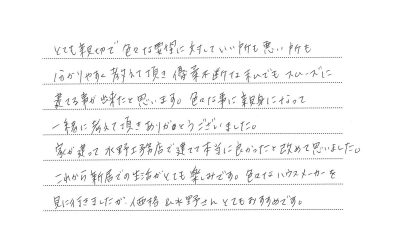 とても親切で色々な要望に対していい所も悪い所も
分かりやすく教えて頂き優柔不断な私でもスムーズに
建てる事が出来たと思います。色々な事に親身になって
一緒に考えて頂きありがとうございました。
家が建って水野工務店で建てて本当に良かったと改めて思いました。
これから新居での生活がとても楽しみです。色々なハウスメーカーを
見に行きましたが、価格も水野さんとてもおすすめです。